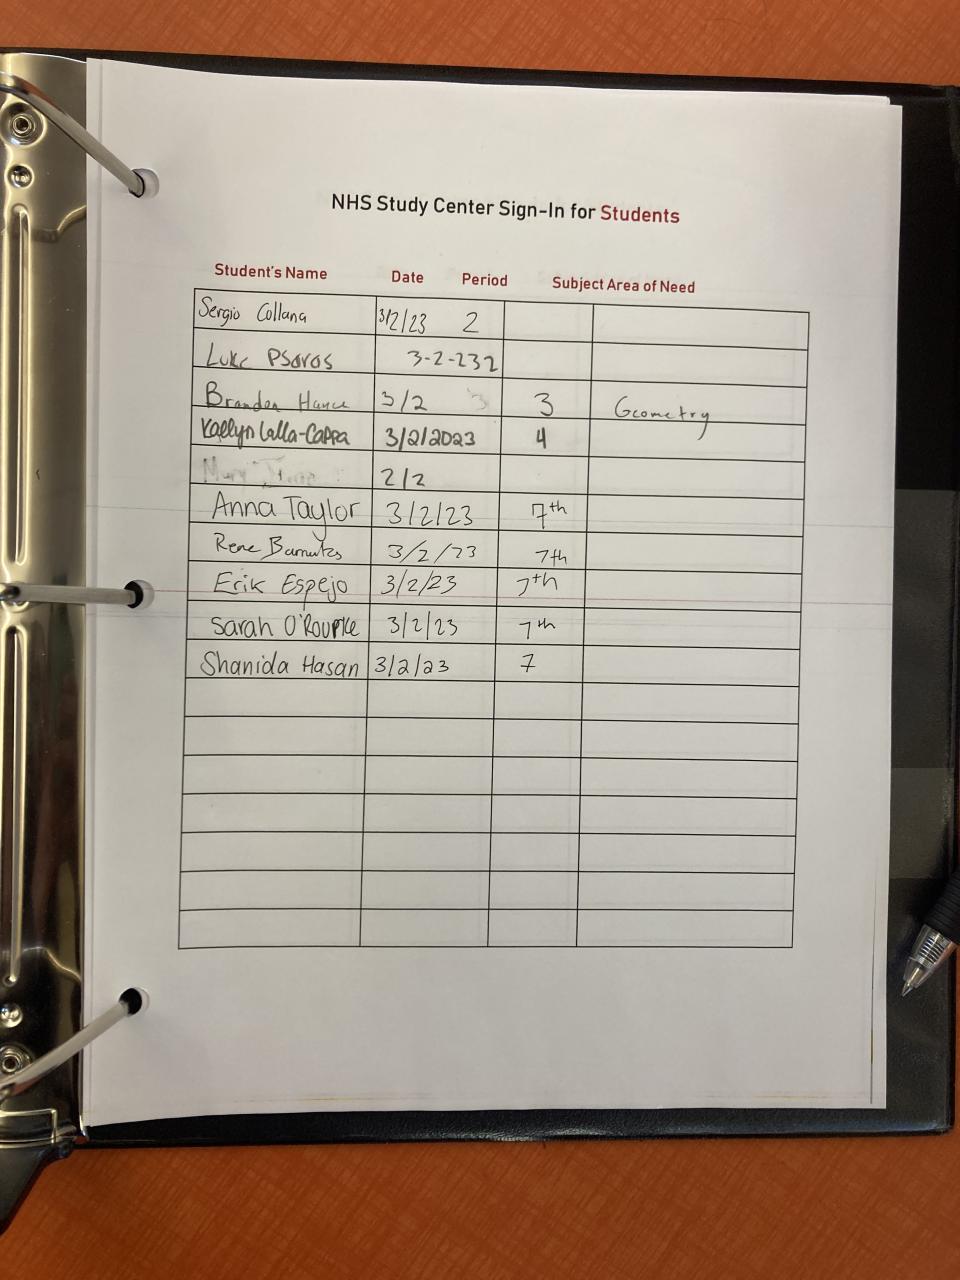 NHS Study Center Sign-In for Students
Student's Name Date Period Subject Area of Need
Sergio Collana 3/2/23 2
Luke Psoros 3-2-23 2
Brandon Hance 3/2 3 3 Geometry
Kaelyn Lalla-Cappa 3/2/2023 4
2/2
Anna Taylor 3/2/23 7th
Rene 3/2/23 7th
Erik Espejo 3/2/23 7th
Sarah O'Rourke 3/2/23 7th
Shanida Hasan 3/2/23 7